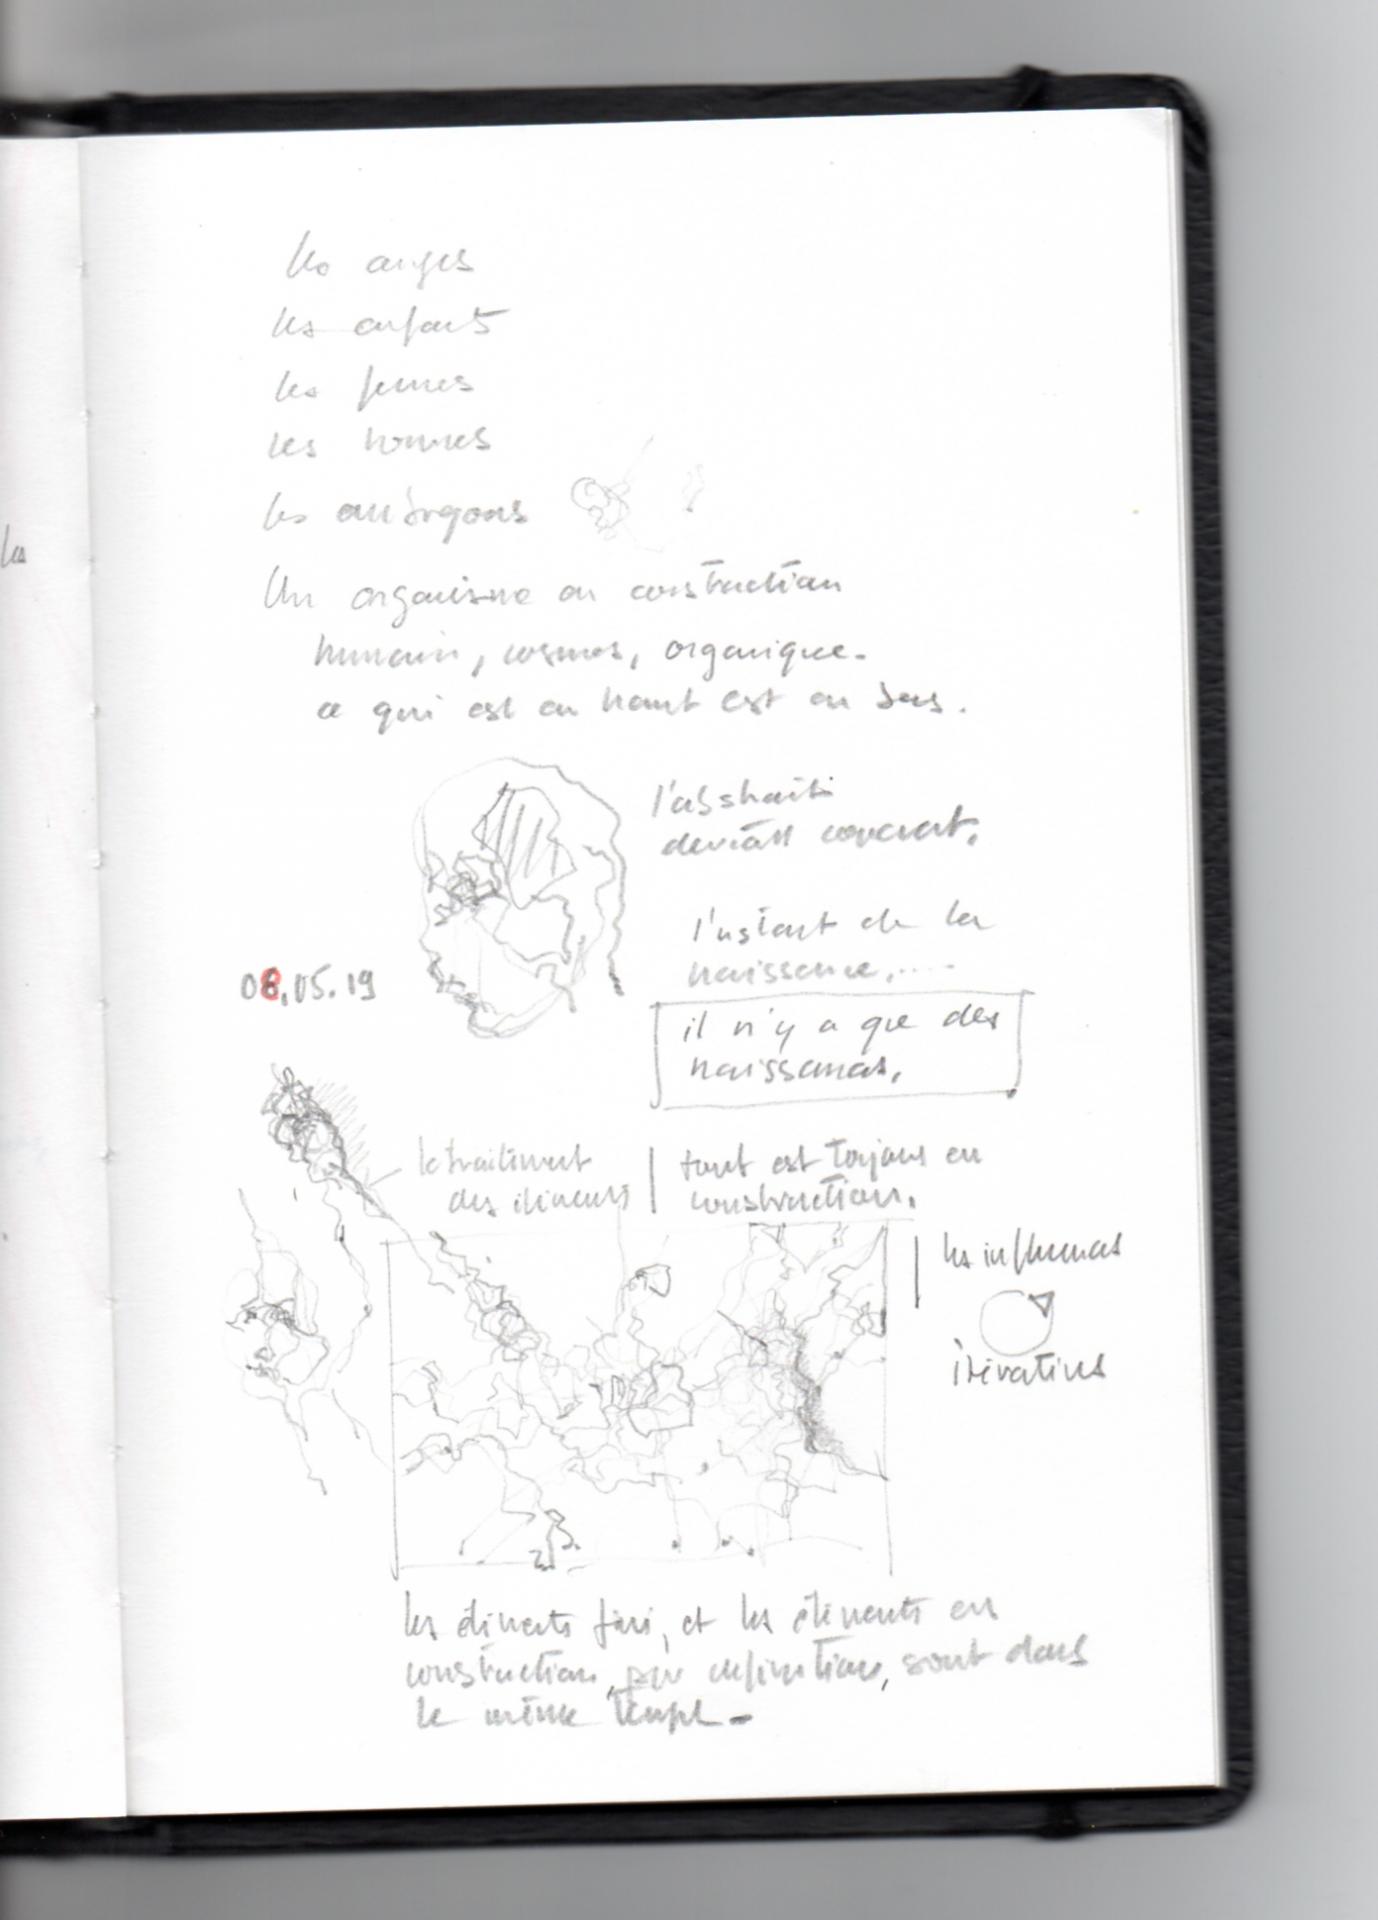 les anges
les enfants
les femmes
les hommes
les
Un organisme en construction
humain, cosmos, organique.
ce qui est en haut est en bas.
l'abstrait
devient concret.
l'instant de la
naissance,....
08.05.19
il n'y a que des
naissances.
le traitement
des éléments
tout est toujours en
construction.
les influences
itérations
les éléments finis, et les éléments en
construction, par définition, sont dans
le même temps.
les